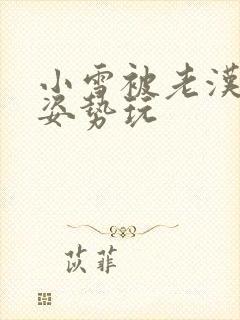 小雪被老漢
姿勢玩
苡菲